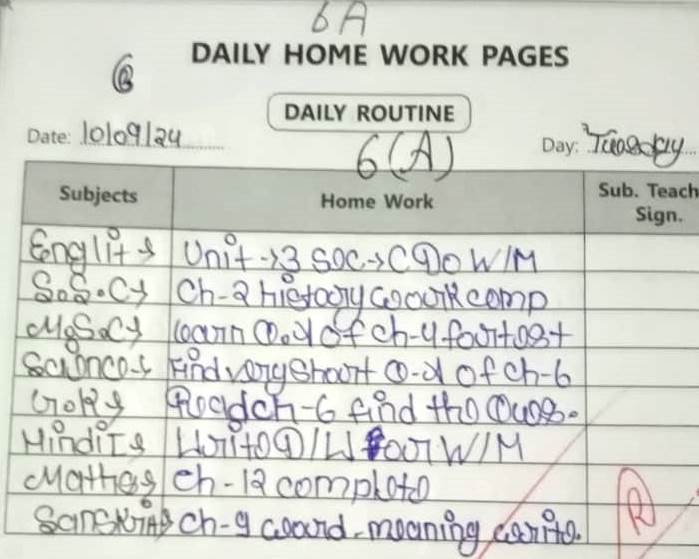 6 A
DAILY HOME WORK PAGES
6
DAILY ROUTINE
Date: 10/09/24 6(A) Day: Tuesday
Subjects Home Work Sub. Teach Sign.
English Unit → 3 Sec → C Do W/M
S.S.C Ch-2 history work comp
M.S.C learn Q.A of ch-4 for test
Science find very Short Q-A of ch-6
G.K Read ch-6 find the Ques.
Hindi Write for W/M
Maths ch-12 complete
Sanskrit ch-9 word-meaning write.
R